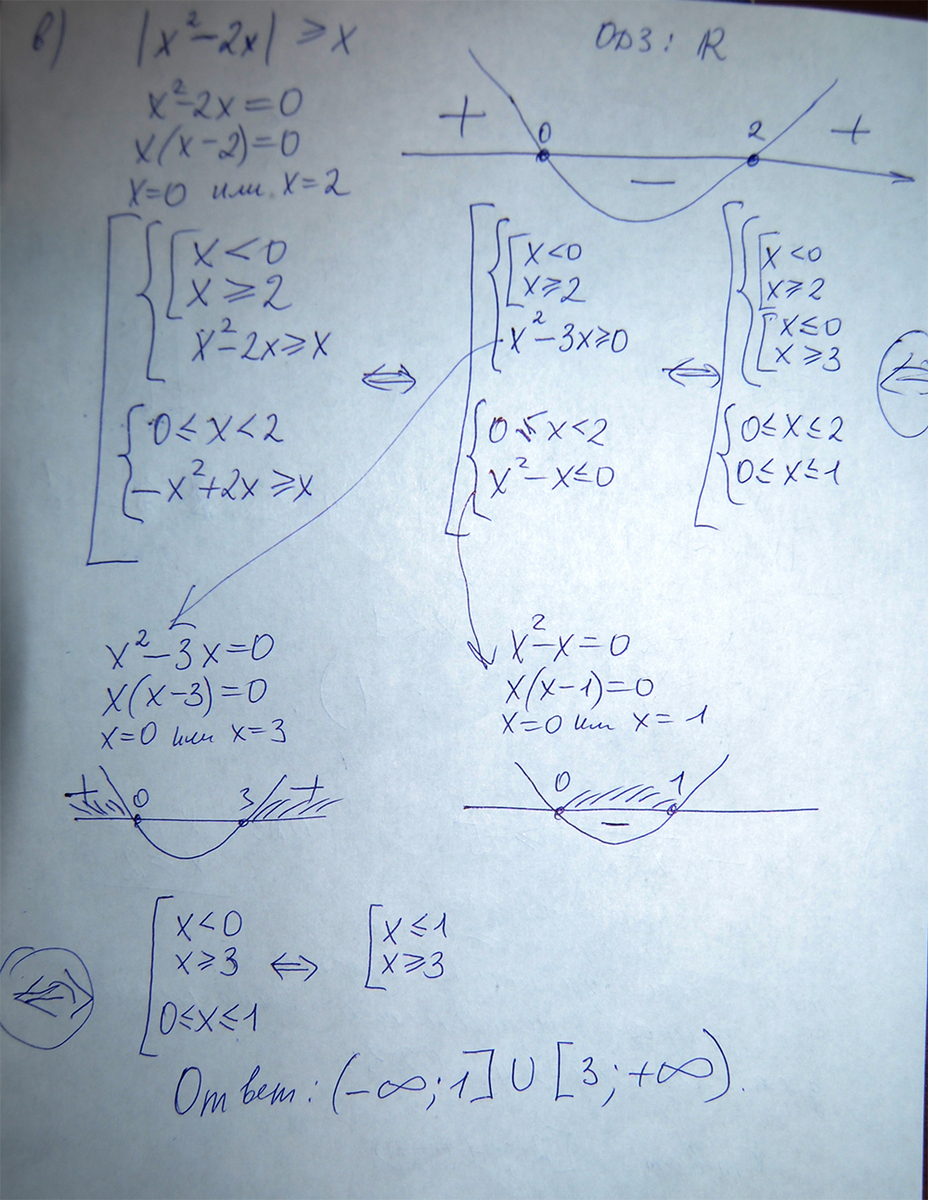 в) |x²-2x| ≥ x
ОДЗ: ℝ
x²-2x=0
x(x-2)=0
x=0 или x=2
+ 0 − 2 +
x<0
x≥2
x²-2x≥x
0≤x<2
-x²+2x≥x
⇔
x<0
x≥2
x²-3x≥0
0≤x<2
x²-x≤0
⇔
x<0
x≥2
x≤0
x≥3
0≤x≤2
0≤x≤1
⇔
x²-3x=0
x(x-3)=0
x=0 или x=3
+ 0 3 +
x²-x=0
x(x-1)=0
x=0 или x=1
0 − 1
⇔
x<0
x≥3
0≤x≤1
⇔
x≤1
x≥3
Ответ: (-∞;1]∪[3;+∞).